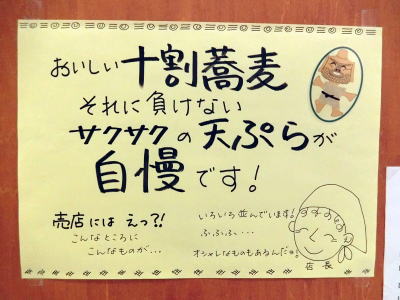 おいしい十割蕎麦
それに負けない
サクサクの天ぷらが
自慢です!
売店には えっ?!
こんなところに
こんなものが・・・
いろいろ並んでいます!
ふふふ・・・
オシャレなものもあるんだョ。
店長